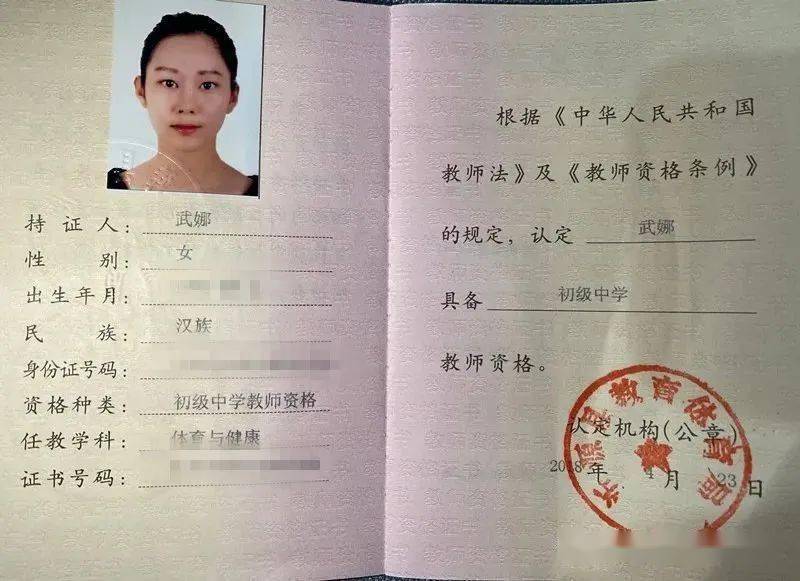 持证人：武娜
性别：女
出生年月：
民族：汉族
身份证号码：
资格种类：初级中学教师资格
任教学科：体育与健康
证书号码：
根据《中华人民共和国
教师法》及《教师资格条例》
的规定，认定 武娜
具备 初级中学
教师资格。
认定机构(公章)
2018年 4月 23日
县教育体育局